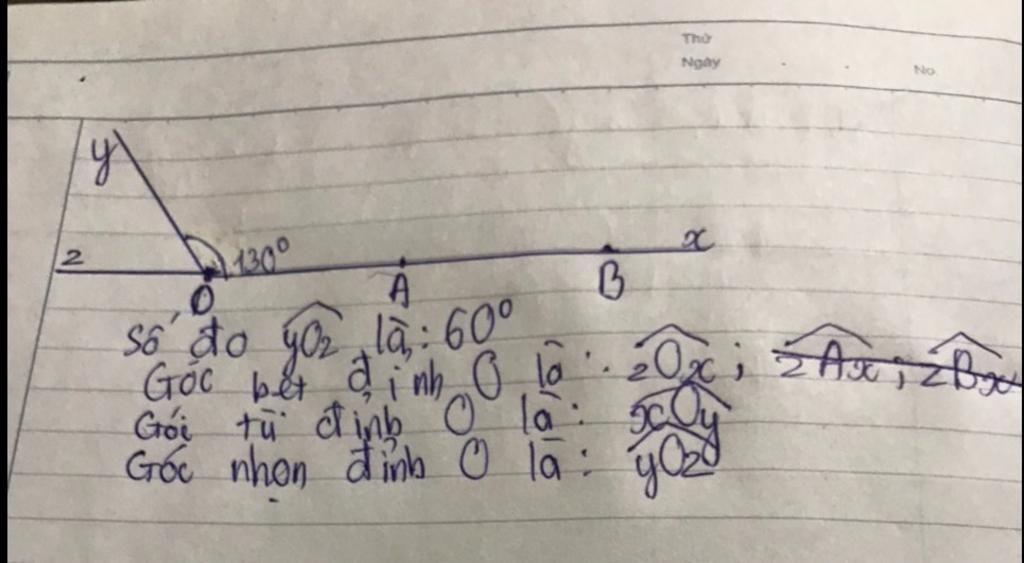 Thứ
Ngày
No
y
z
130°
x
O
A
B
Số đo yOz là: 60°
Góc bẹt đỉnh O là: zOx; zAx; zBx
Gói tù đỉnh O là: xOy
Góc nhọn đỉnh O là: yOz